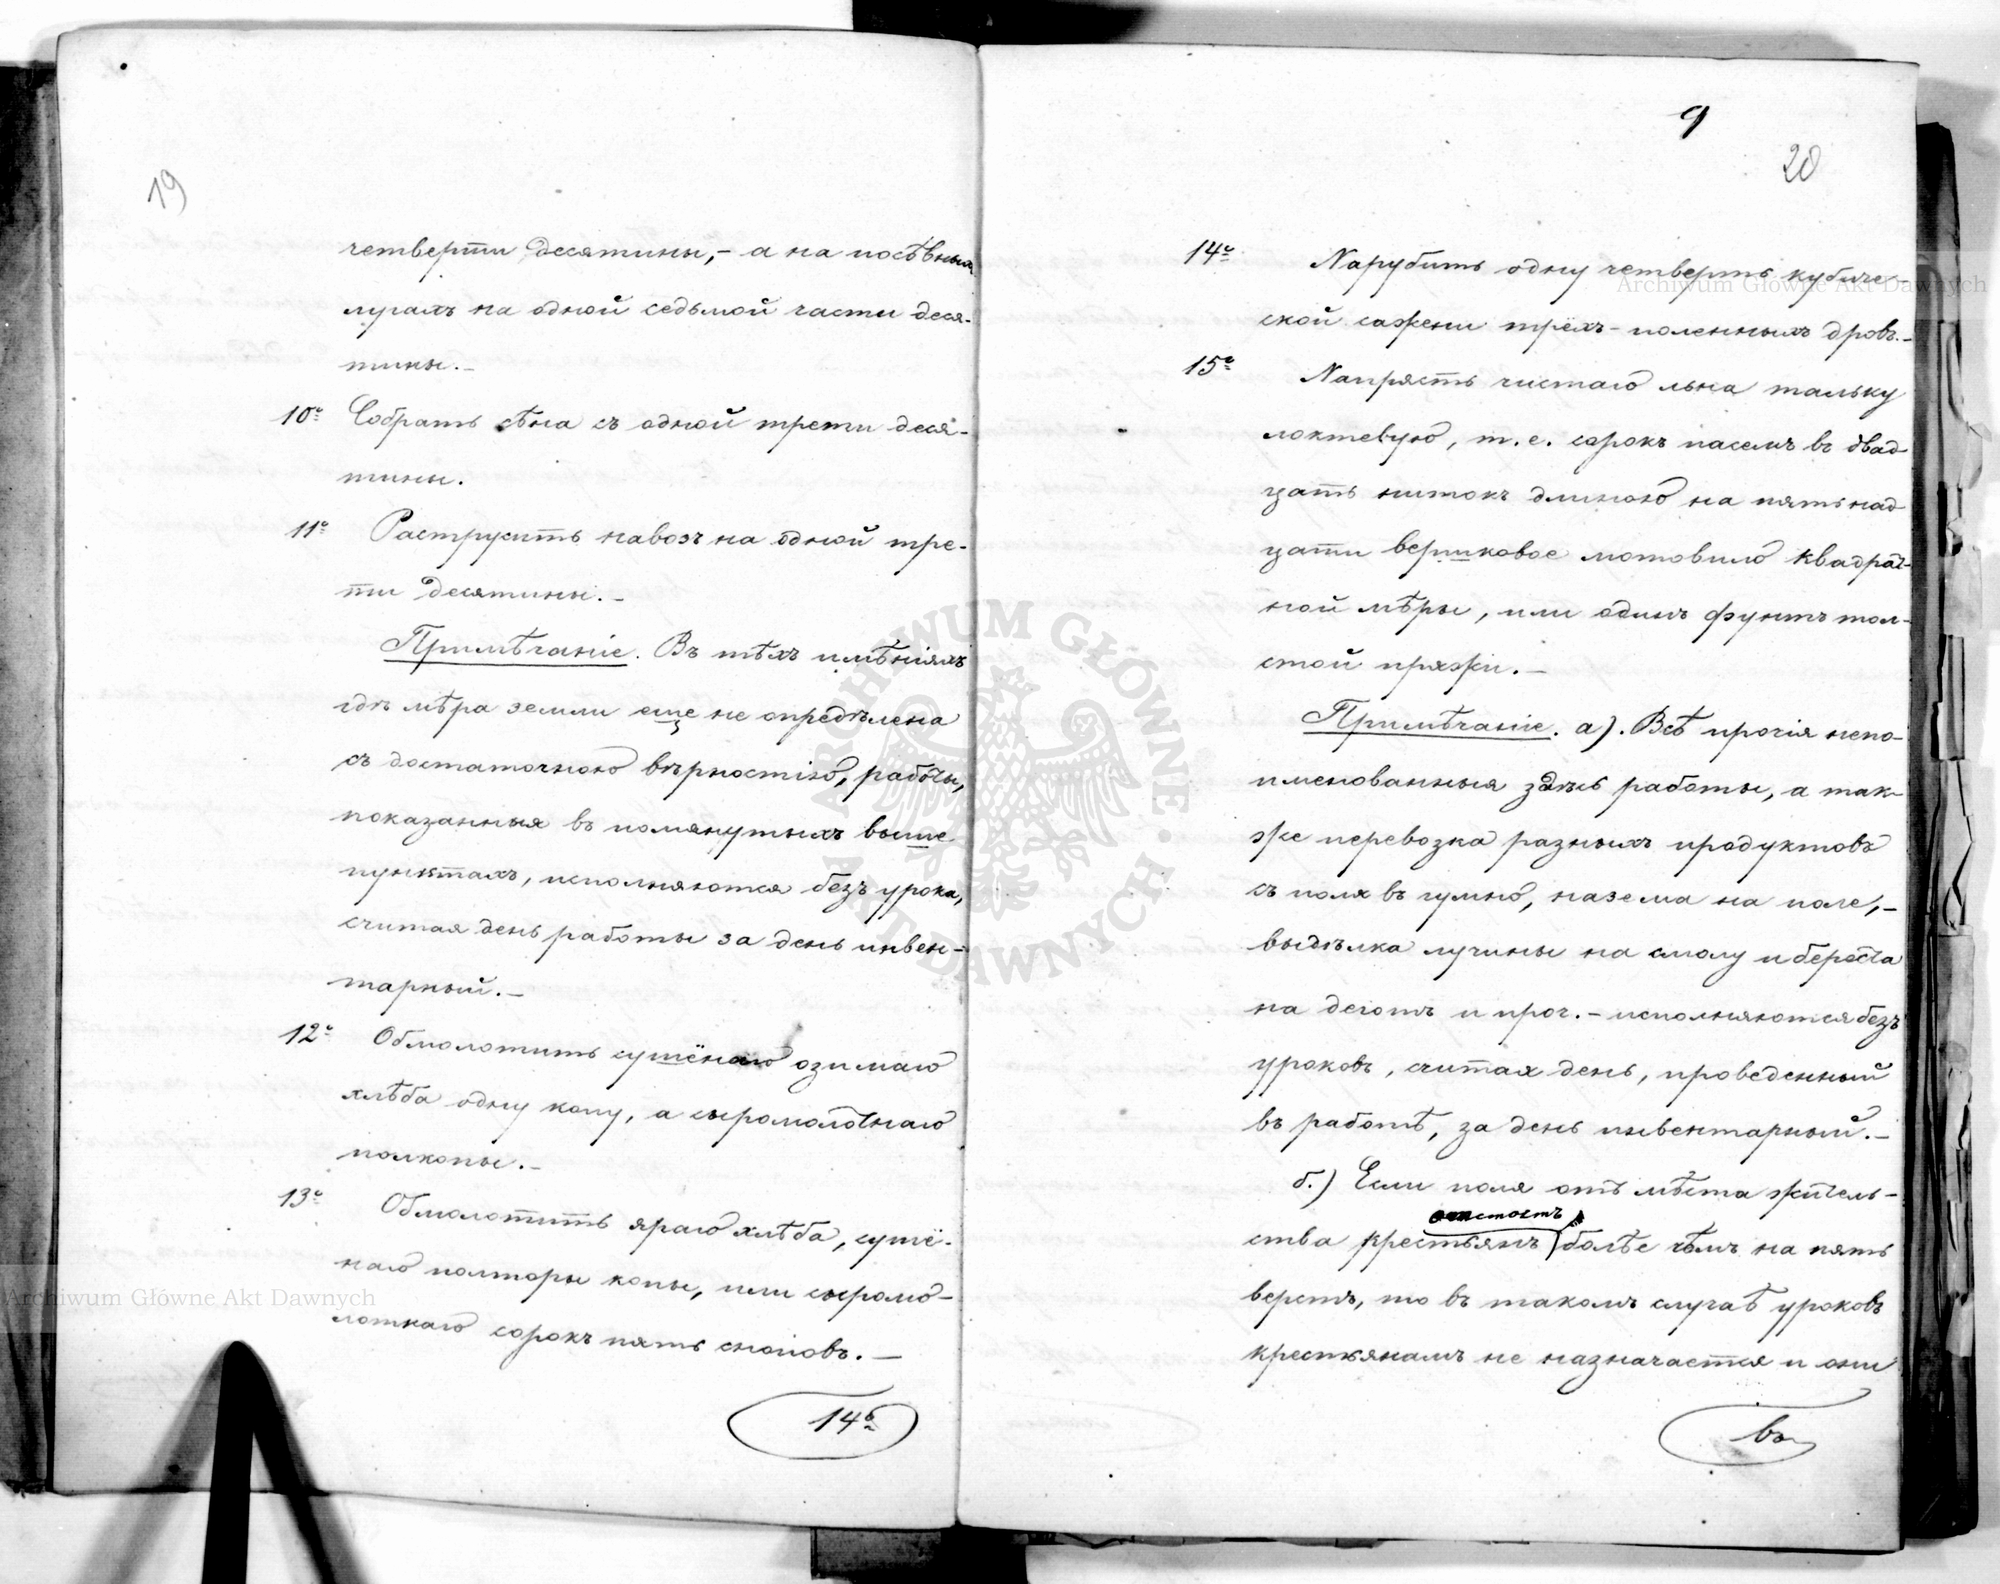 19
четверти десятины,- а на посѣвныхъ
лугахъ на одной седьмой части деся-
тины.-
10е Собрать сѣна съ одной трети деся-
тины.
11е Раструсить навозъ на одной тре-
ти десятины.-
Примѣчаніе. Въ тѣхъ имѣніяхъ
гдѣ мѣра земли еще не опредѣлена
съ достаточною вѣрностію, работы,
показанныя въ помянутыхъ выше
пунктахъ, исполняются безъ урока,
считая день работы за день инвен-
тарный.-
12е Обмолотить сушёнаго озимаго
хлѣба одну копу, а сыромолотнаго
полкопы.-
13е Обмолотить яраго хлѣба, сушё-
наго полторы копы, или сыромо-
лотнаго сорокъ пять сноповъ.-
14е
9
20
14е Нарубить одну четверть кубиче-
ской сажени трёхъ-поленныхъ дровъ.-
15е Напрясть чистаго льна тальку
локтевую, т.е. сорокъ пасемъ въ двад-
цать нитокъ длиною на пятьнад-
цати вершковое мотовило квадрат-
ной мѣры, или одинъ фунтъ тол-
стой пряжи.-
Примѣчаніе. а). Всѣ прочія непо-
именованныя здѣсь работы, а так-
же перевозка разныхъ продуктовъ
съ поля въ гумно, назема на поле,-
выдѣлка лучины на смолу и береста
на деготь и проч.- исполняются безъ
уроковъ, считая день, проведенный
въ работѣ, за день инвентарный.-
б.) Если поля отъ мѣста житель-
отстоятъ
ства крестьянъ болѣе чѣмъ на пять
верстъ, то въ такомъ случаѣ уроковъ
крестьянамъ не назначается и они
въ
Archiwum Główne Akt Dawnych
Archiwum Główne Akt Dawnych
ARCHIWUM GŁÓWNE AKT DAWNYCH